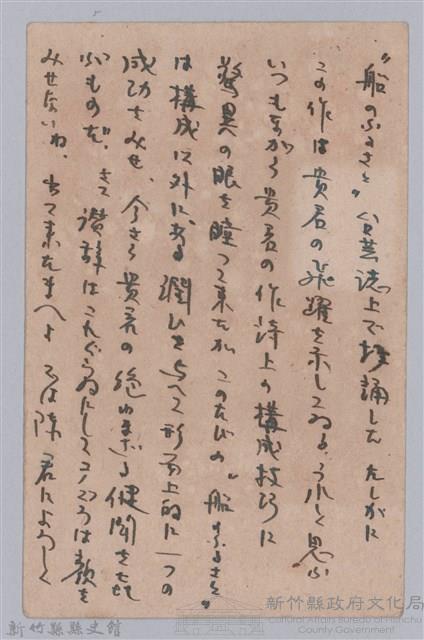 "船のふるさと" 公芸誌上で拝誦した たしかに
この作は貴君の飛躍を示してゐるう小しく思ふ
いつもながら貴君の作詩上の構成技巧に
驚異の眼を瞳つて来たが このたびの"船のふるさと"
は構成以外にある潤ひを与へて形而上的に一つの
成功をみせ、今さら貴君の絶間ざる健闘をたた
ふものだ、さて 讃辞はこれぐらゐにして コノごろは顔を
みせないね、出て来たまへよ では陳君によろしく
新竹縣縣史館
新竹縣政府文化局
Cultural Affairs Bureau of Hsinchu
County Government